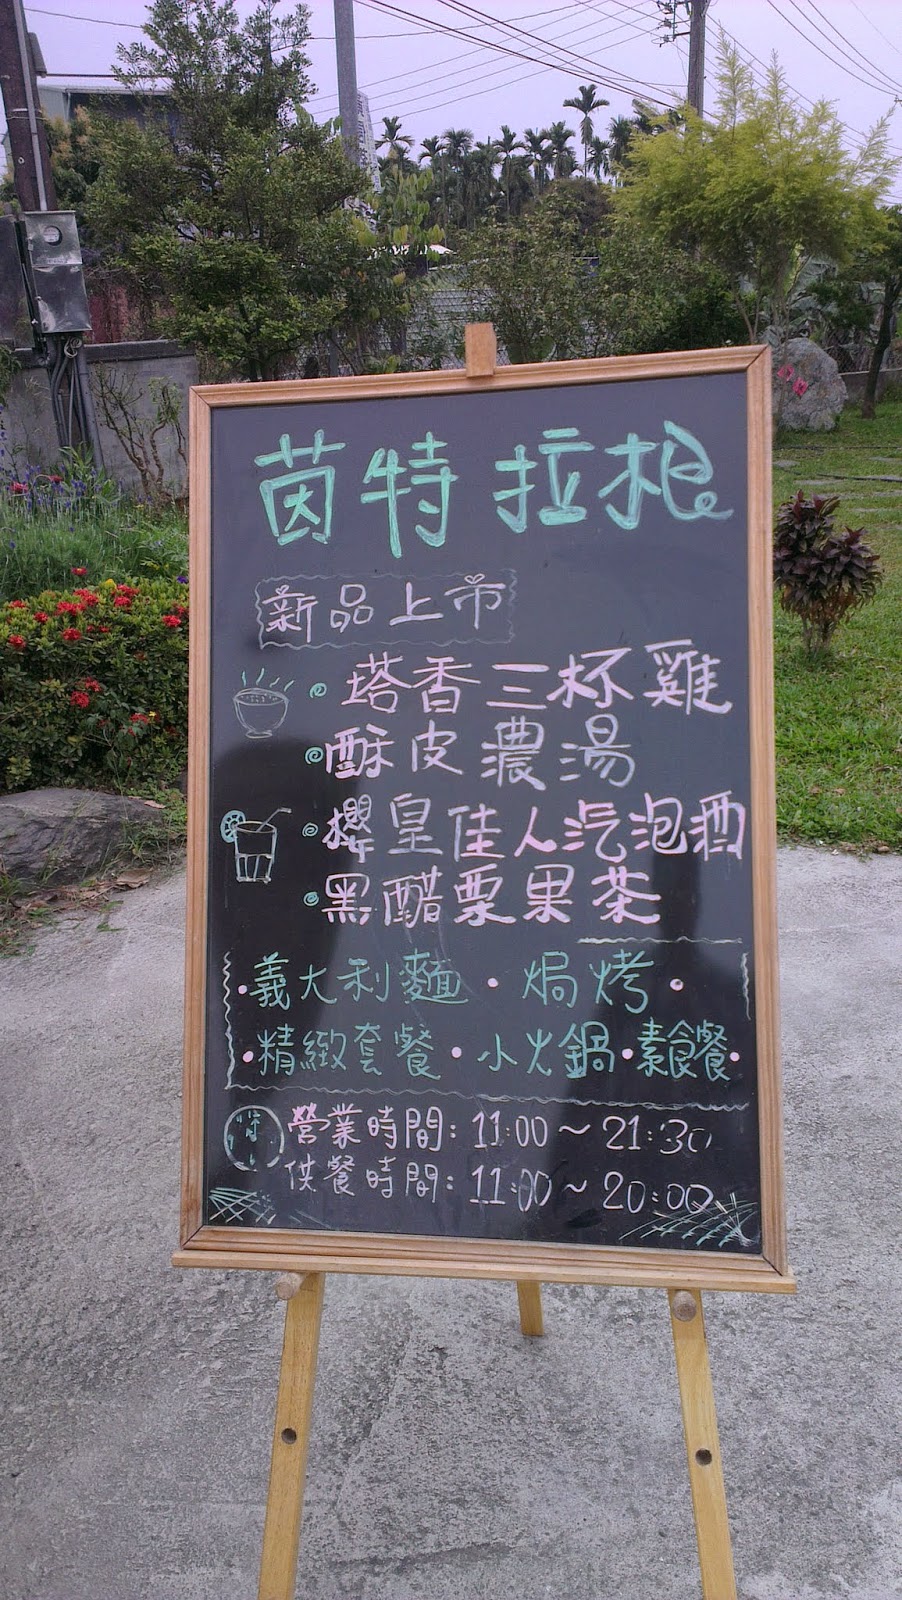 茵特拉根
新品上市
塔香三杯雞
酥皮濃湯
櫻皇佳人汽泡酒
黑醋栗果茶
·義大利麵·焗烤·
·精緻套餐·小火鍋·素食餐·
營業時間:11:00~21:30
供餐時間:11:00~20:00